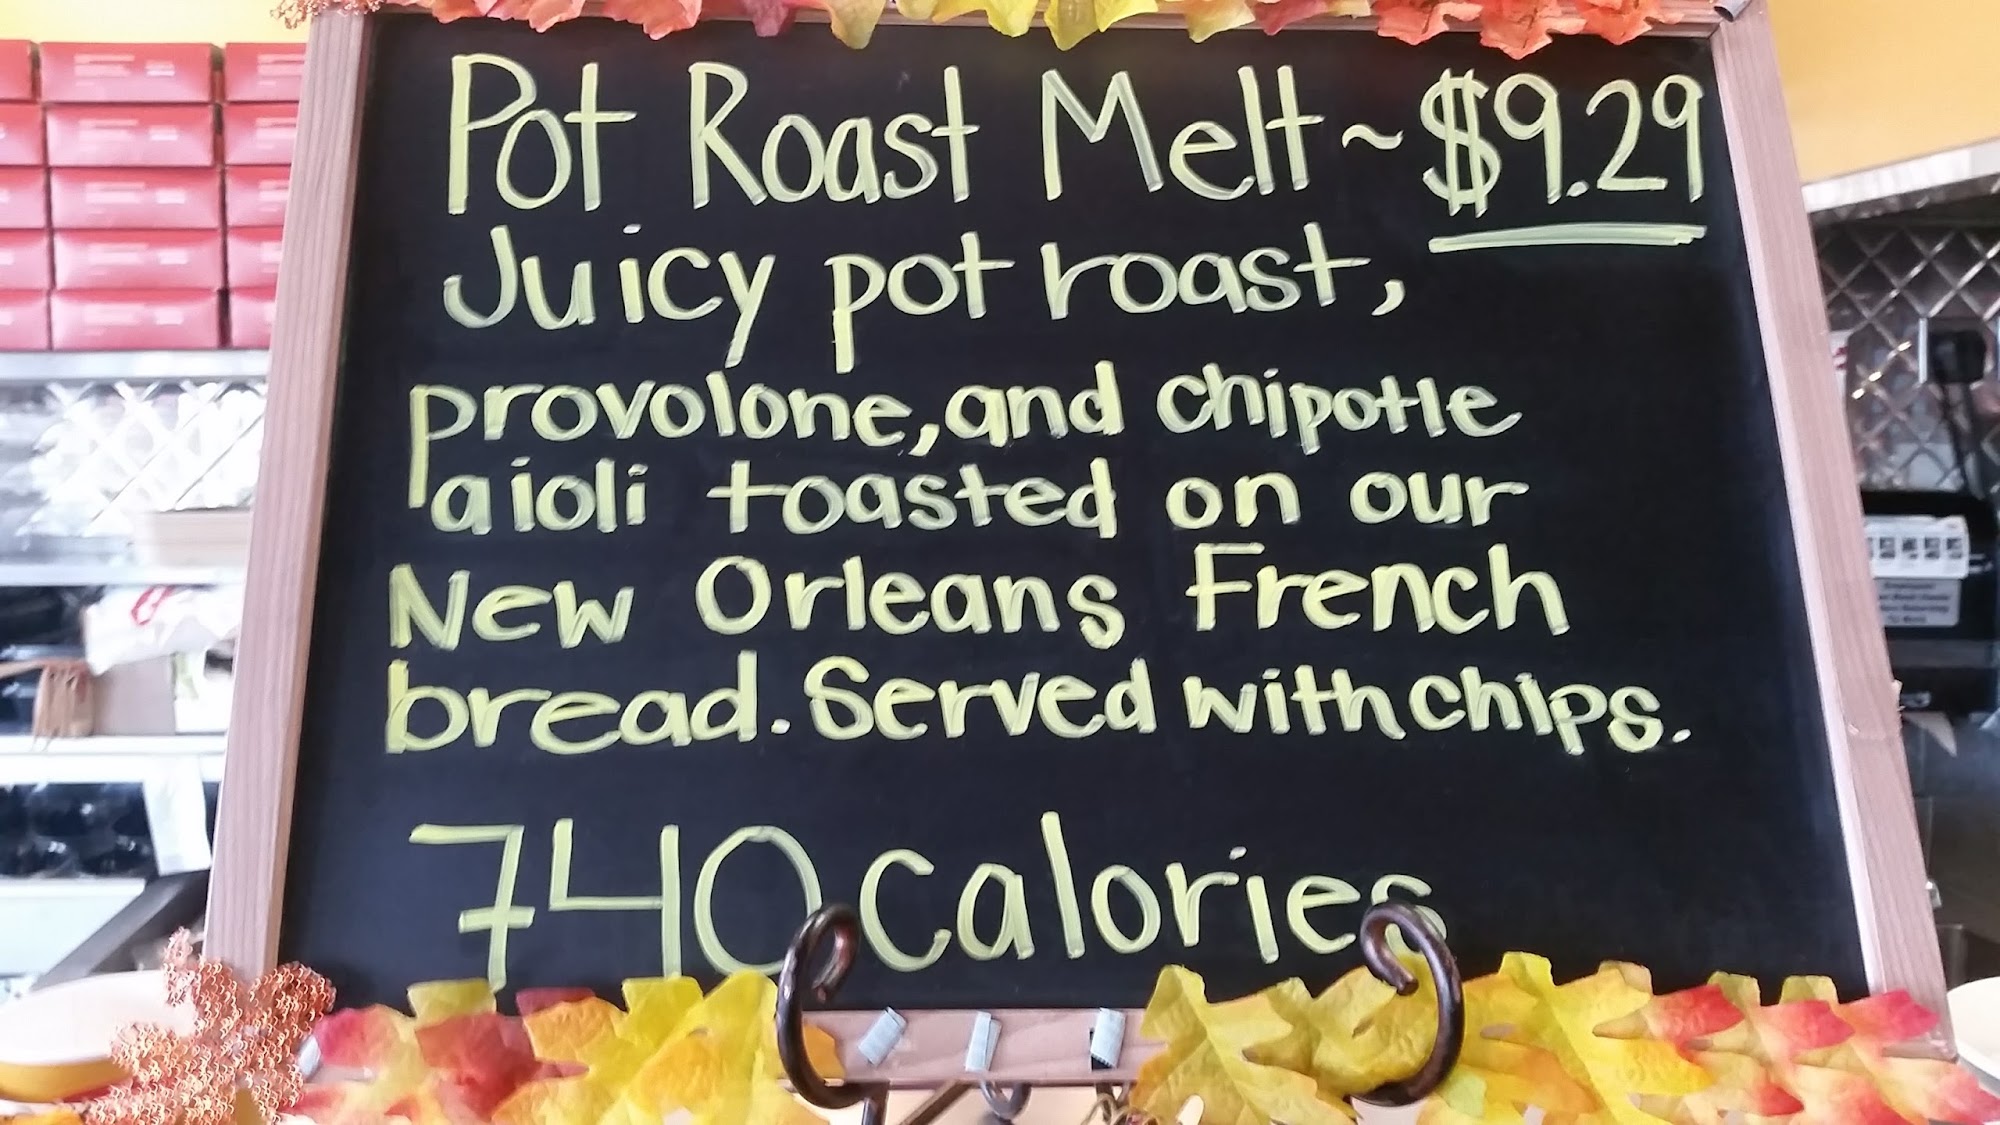 Pot Roast Melt ~ $9.29
Juicy pot roast,
provolone, and chipotle
aioli toasted on our
New Orleans French
bread. Served with chips.
740 Calories